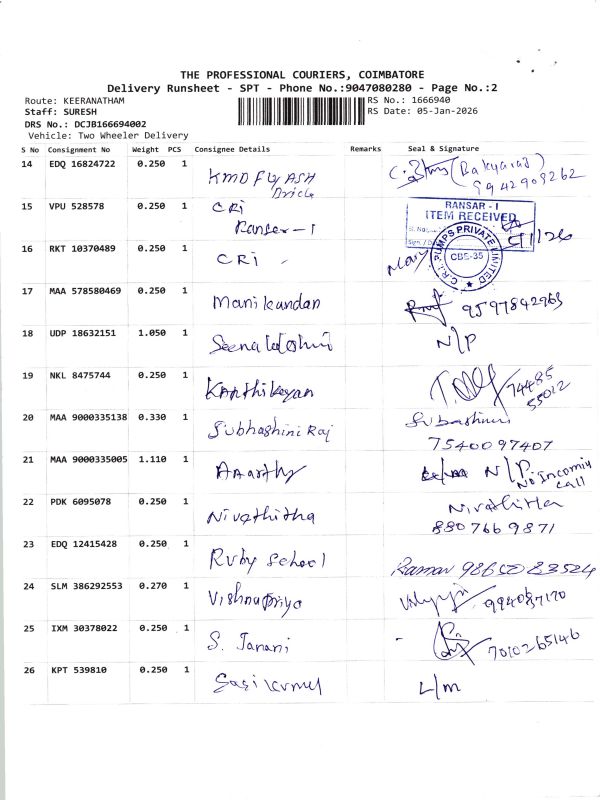 THE PROFESSIONAL COURIERS, COIMBATORE
Delivery Runsheet - SPT - Phone No.:9047080280 - Page No.:2
Route: KEERANATHAM
RS No.: 1666940
Staff: SURESH
RS Date: 05-Jan-2026
DRS No.: DCJB166694002
Vehicle: Two Wheeler Delivery
S No Consignment No Weight PCS Consignee Details Remarks Seal & Signature
14 EDQ 16824722 0.250 1
KMD FLY ASH
Brick
(Bakyaraj)
9942909262
15 VPU 528578 0.250 1 CRI
Ranser-1
RANSAR - I
ITEM RECEIVED
16 RKT 10370489 0.250 1
CRI
C.R.I. PUMPS PRIVATE LIMITED
CBE-35
17 MAA 578580469 0.250 1
Manikandan
9597842963
18 UDP 18632151 1.050 1
N/P
19 NKL 8475744 0.250 1
Karthikeyan
74485
55012
20 MAA 9000335138 0.330 1
Subhashini Raj
Subashini
7540097407
21 MAA 9000335005 1.110 1
Aaarthy
N/P
No Incoming
call
22 PDK 6095078 0.250 1
Nivethitha
Nivethitha
8807669871
23 EDQ 12415428 0.250 1
Ruby School
Raman
24 SLM 386292553 0.270 1
Vishnupriya
25 IXM 30378022 0.250 1
S. Janani
7010265146
26 KPT 539810 0.250 1
Sasikumar
L/m